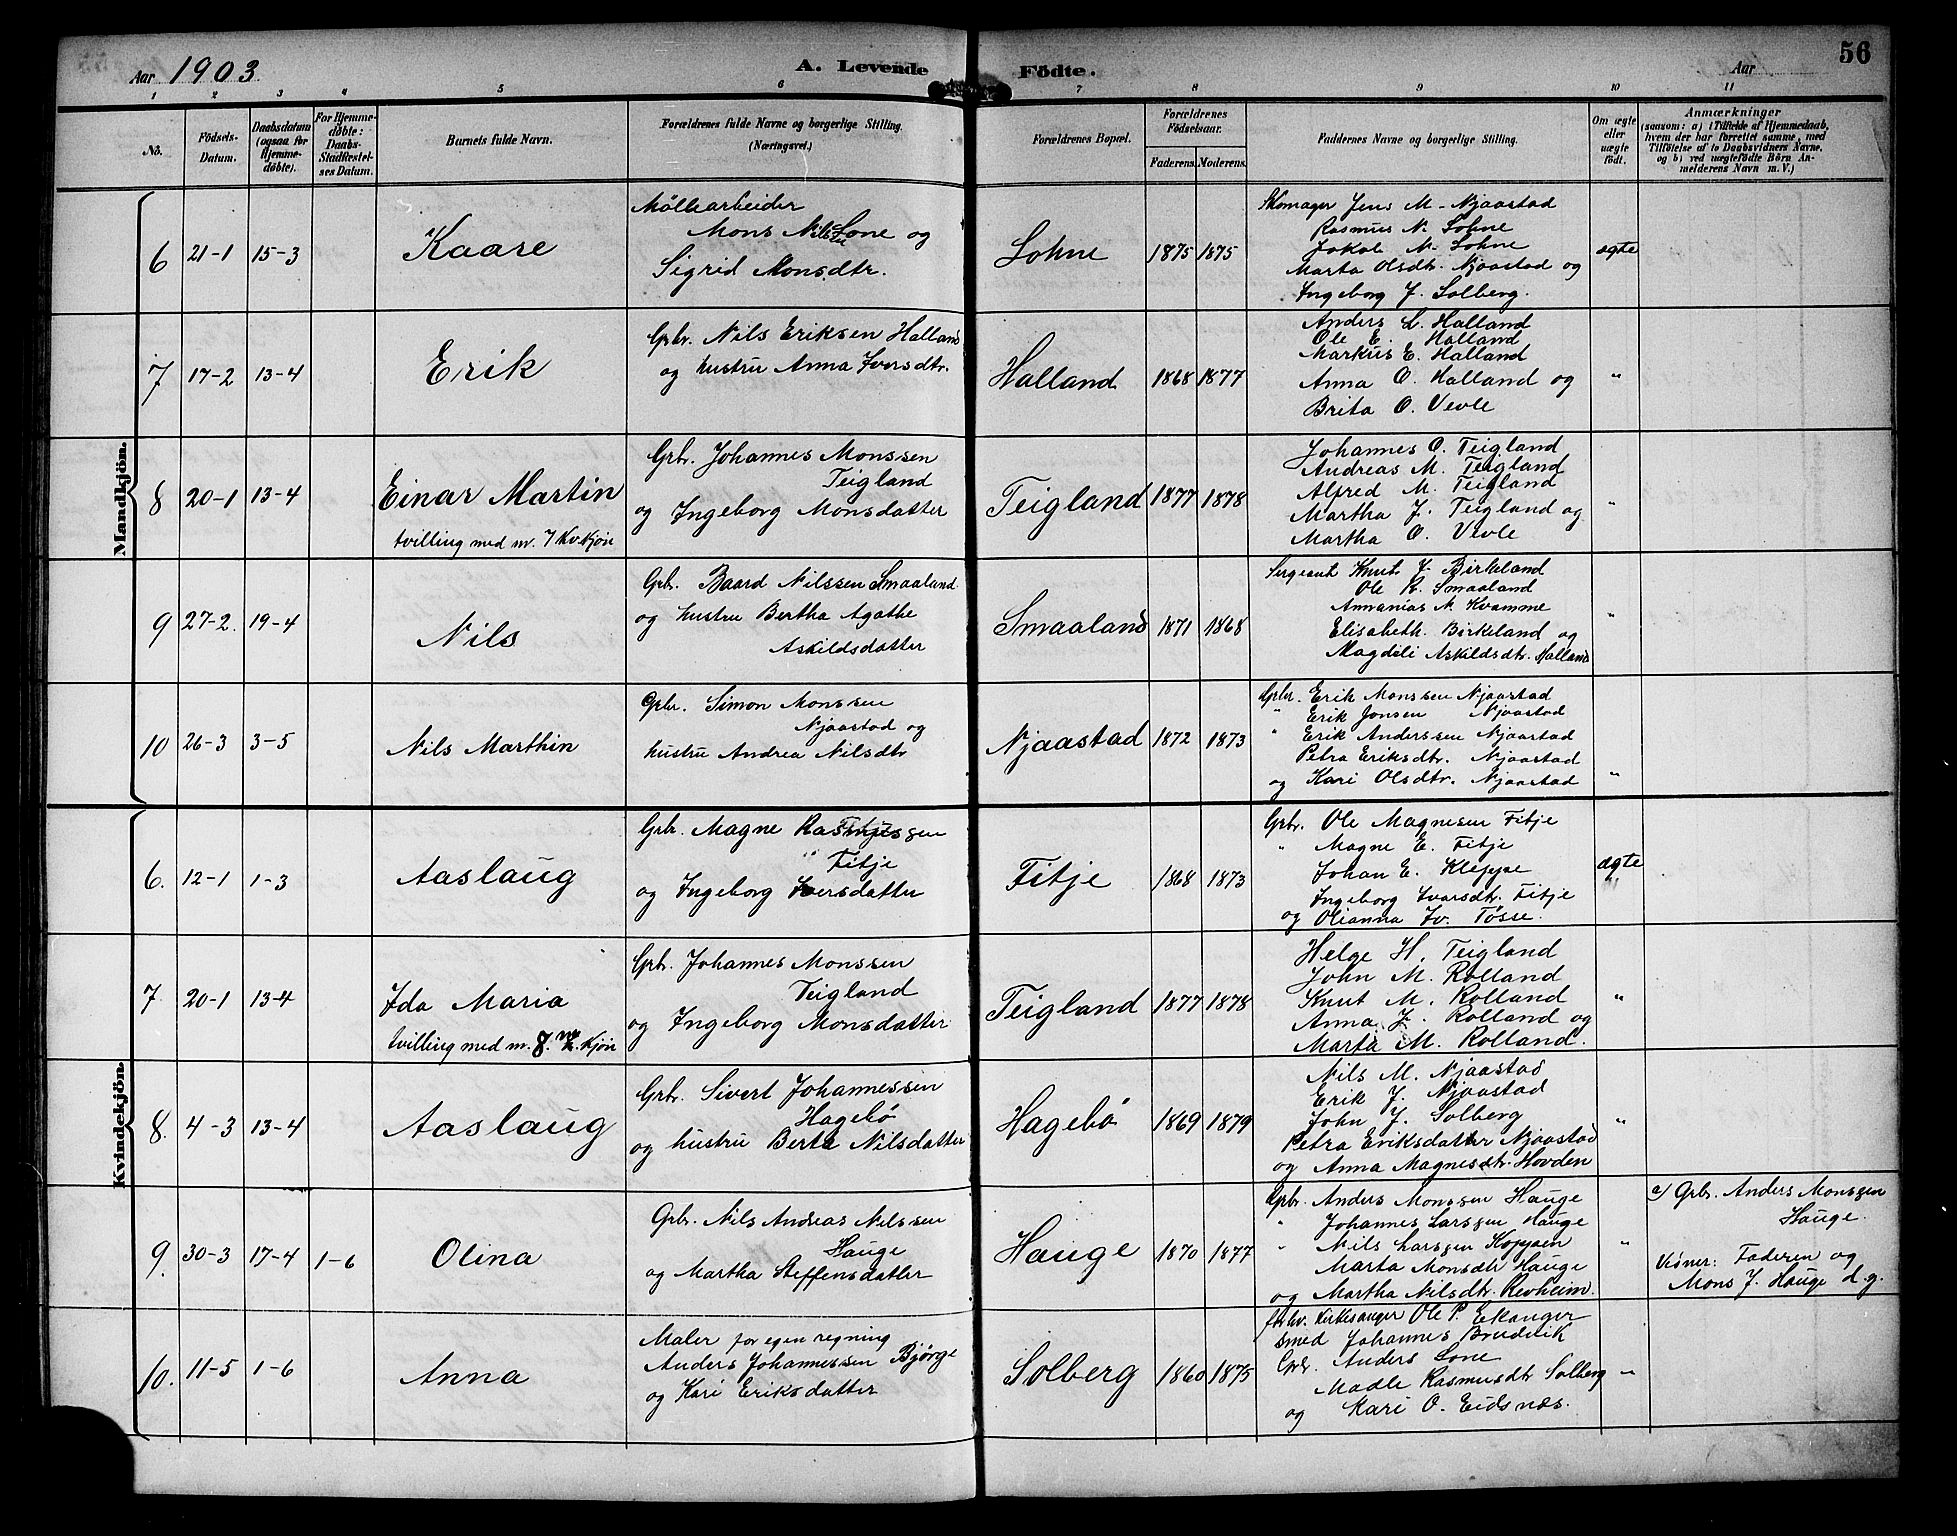 Aar 1903.
A. Levende Födte.
Aar
56
1 2 3 4 5 6 7 8 9 10 11
No.
Födsels-Datum.
Daabsdatum (ogsaa for Hjemme-döbte).
For Hjemme-döbte: Daabs-Stadfæstel-ses Datum.
Barnets fulde Navn.
Forældrenes fulde Navne og borgerlige Stilling. (Næringsvei.)
Forældrenes Bopæl.
Forældrenes Födselsaar.
Faderens. Moderens.
Faddernes Navne og borgerlige Stilling.
Om ægte eller uægte födt.
Anmærkninger
(saasom: a) i Tilfælde af Hjemmedaab,
hvem der har forrettet samme, med
Tilföielse af to Daabsvidners Navne,
og b) ved uægtefödte Börn An-
melderens Navn m. V.)
Mandkjön.
6 21-1 15-3
Kaare
Möllearbeider
Mons Nilsen Lone og
Sigrid Monsdtr.
Lohne 1875 1875
Skomager Jens M. Njaastad
Rasmus N. Lohne
Jakob M. Lohne
Marta Olsdtr. Njaastad og
Ingeborg J. Solberg.
ægte
7 17-2 13-4
Erik
Grbr. Nils Eriksen Halland
og hustru Anna Iversdtr.
Halland 1868 1877
Anders L. Halland
Ole E. Halland
Markus E. Halland
Anna O. Halland og
Brita O. Vevle
"
8 20-1 13-4
Einar Martin
tvilling med nr. 7 Kv.kjön
Grbr. Johannes Monssen
Teigland
og Ingeborg Monsdatter
Teigland 1877 1878
Johannes O. Teigland
Andreas M. Teigland
Alfred M. Teigland
Martha J. Teigland og
Martha O. Vevle
"
9 27-2. 19-4
Nils
Grbr. Baard Nilssen Smaaland
og hustru Bertha Agathe
Askildsdatter
Smaaland 1871 1868
Sergeant Knut J. Birkeland
Ole R. Smaaland
Annanias N. Kvamme
Elisabeth. Birkeland og
Magdeli Askildsdtr. Halland
"
10 26-3 3-5
Nils Marthin
Grbr. Simon Monssen
Njaastad og
hustru Andrea Nilsdtr
Njaastad 1872 1873
Grbr. Erik Monssen Njaastad
" Erik Jonsen Njaastad
" Erik Anderssen Njaastad
Petra Eriksdtr. Njaastad
og Kari Olsdtr. Njaastad
"
Kvindekjön.
6. 12-1 1-3
Aaslaug
Grbr. Magne Rasmussen
Fitje
og Ingeborg Iversdatter
Fitje 1868 1873
Grbr. Ole Magnesen Fitje
" Magne E. Fitje
Johan E. Kleppe
Ingeborg Ivarsdtr. Fitje
og Olianna Iv. Tösse.
ægte
7. 20-1 13-4
Ida Maria
tvilling med nr. 8. M. Kjön
Grbr. Johannes Monssen
Teigland
og Ingeborg Monsdatter
Teigland 1877 1878
Helge H. Teigland
John M. Rolland
Knut M. Rolland
Anna J. Rolland og
Marta M. Rolland.
"
8. 4-3 13-4
Aaslaug
Grbr. Sivert Johannessen
Hagebö
og hustru Berta Nilsdatter
Hagebö 1869 1879
Nils M. Njaastad
Erik J. Njaastad
John J. Solberg
Petra Eriksdatter Njaastad
og Anna Magnesdtr. Hovden
"
9. 30-3 17-4 1-6
Olina
Grbr. Nils Andreas Nilssen
Hauge
og Martha Steffensdatter
Hauge 1870 1877
Grbr. Anders Monssen Hauge
" Johannes Larssen Hauge
" Nils Larssen Koppen
Marta Monsdtr Hauge
og Martha Nilsdtr. Revheim.
"
a) Grbr. Anders Monssen
Hauge.
Vidner: Faderen og
Mons J. Hauge d.y.
10. 11-5 1-6
Anna
Maler for egen regning
Anders Johannessen Bjørge
og Kari Eriksdatter
Solberg 1860 1875
Kirkesanger Ole P. Ekanger
Smed Johannes Brudelik
Grbr. Anders Lone
Madli Rasmusdtr Solberg
og Kari O. Eidsnæs.
"